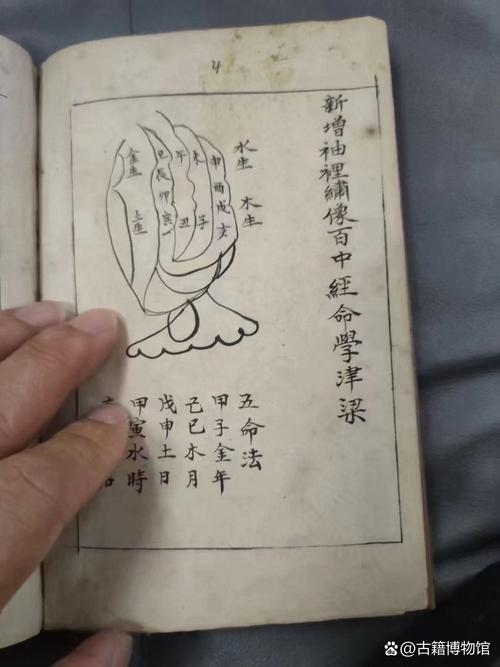 4
新增袖裡繡像百中經命學津梁
水生
木生
金生
土生
巳午未申
辰酉
卯戌
寅丑子亥
五命法
甲子金年
己巳木月
戊申土日
甲寅水時
@古籍博物馆